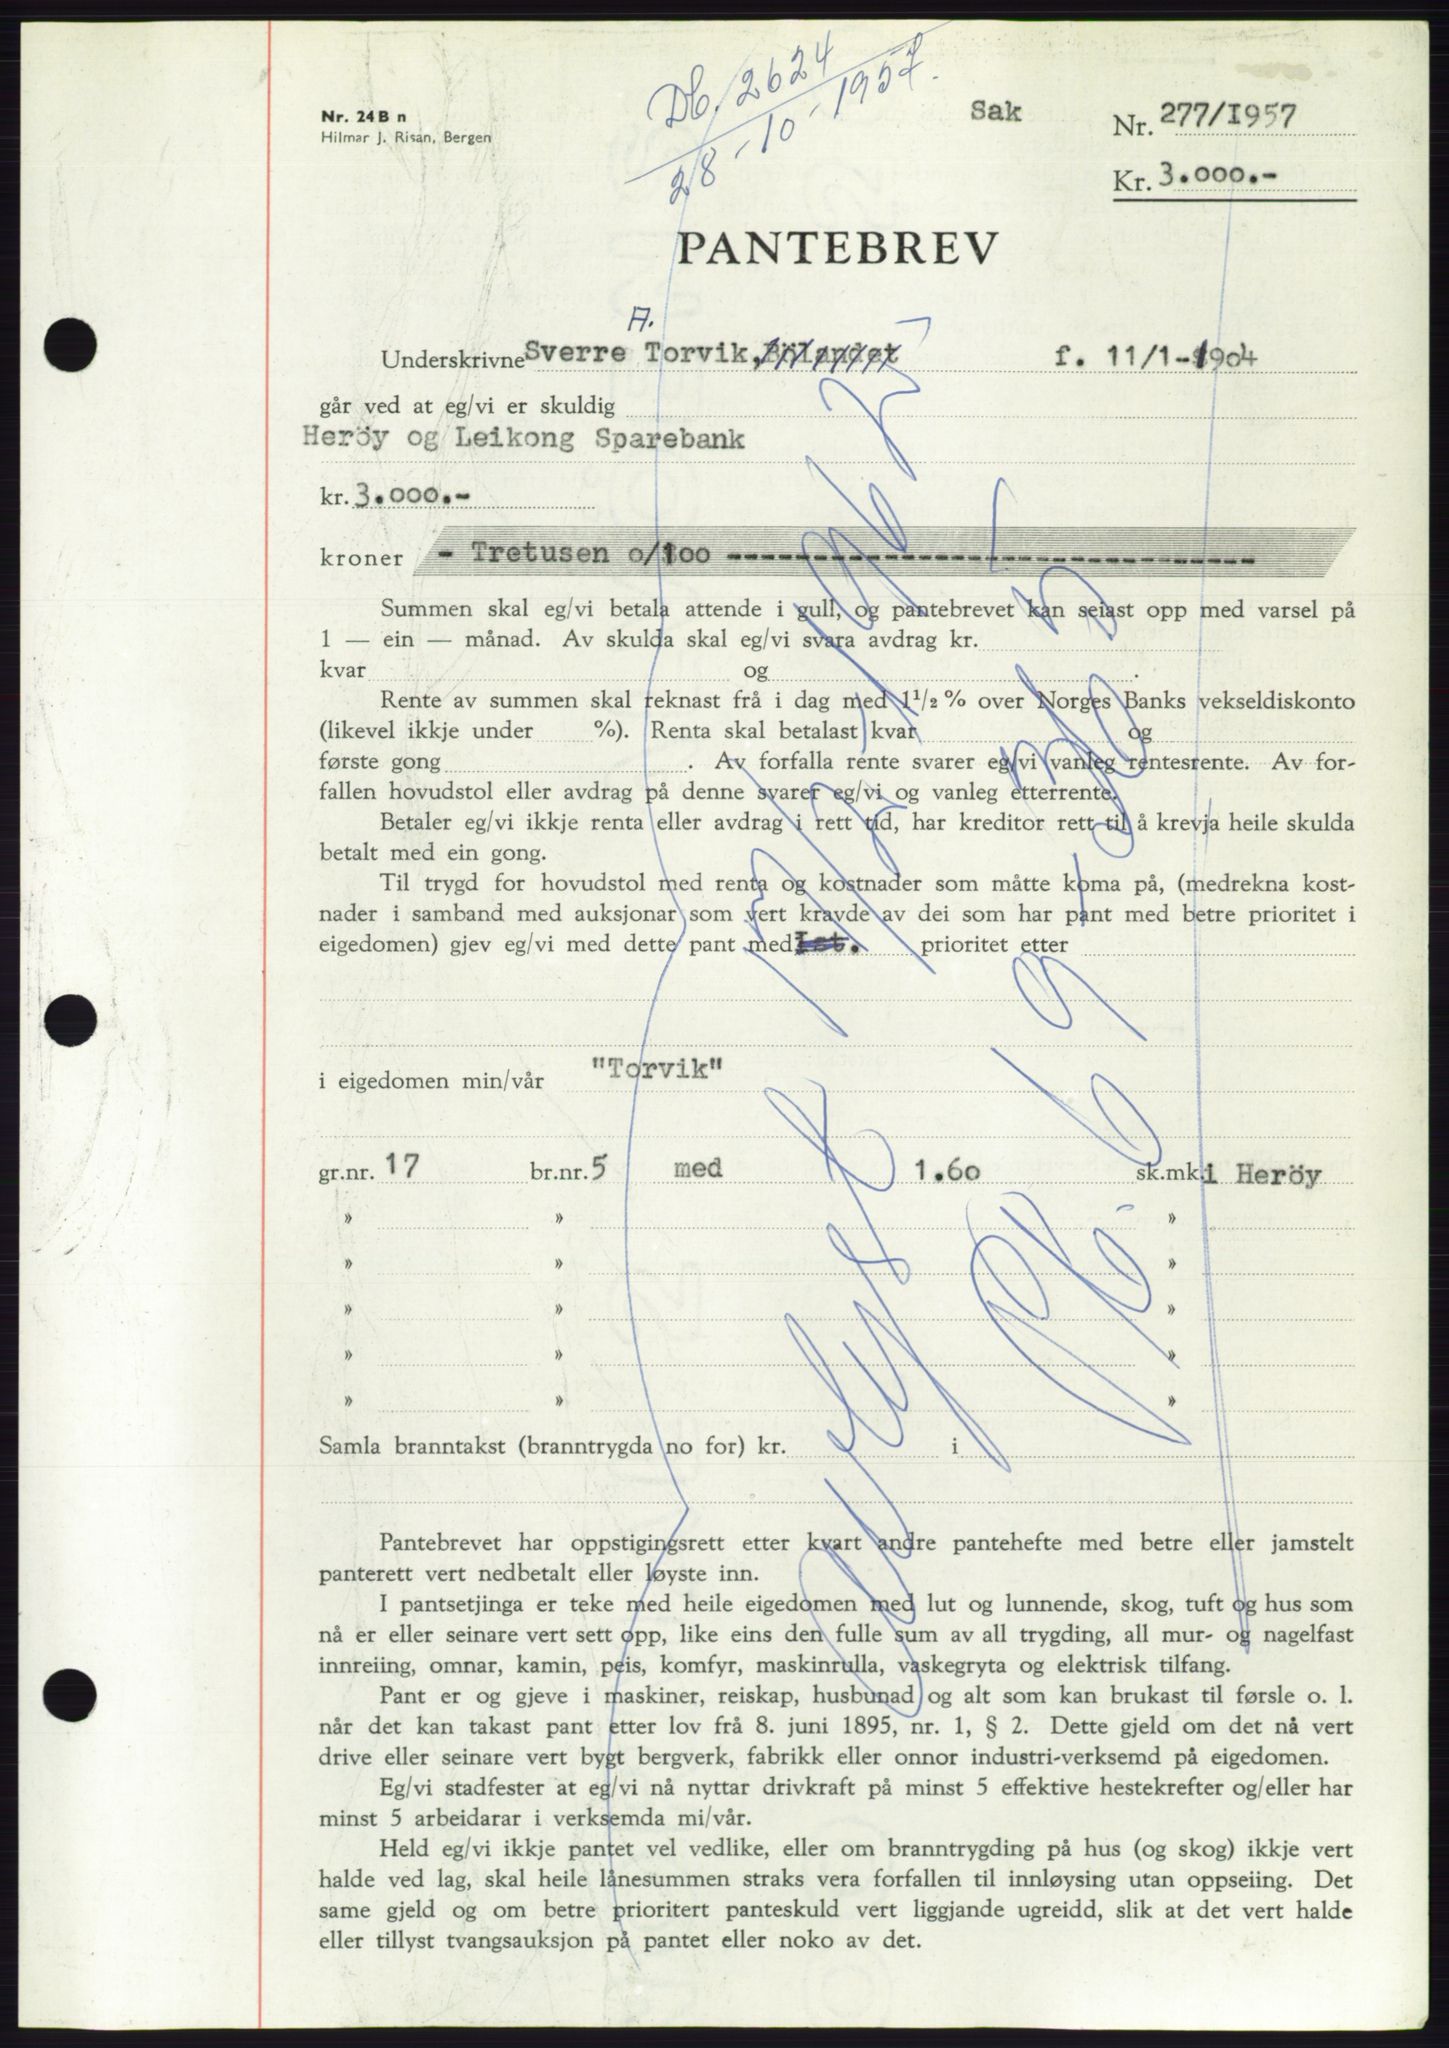 Db. 2624
28-10-1957.
Nr. 24 B n
Hilmar J. Risan, Bergen
Sak
Nr. 277/I957
Kr. 3.000.-
PANTEBREV
A.
Underskrivne Sverre Torvik, f. 11/1-1904
går ved at eg/vi er skuldig
Heröy og Leikong Sparebank
kr. 3.000.-
kroner - Tretusen o/100 ------------------------------------
Summen skal eg/vi betala attende i gull, og pantebrevet kan seiast opp med varsel på
1 — ein — månad. Av skulda skal eg/vi svara avdrag kr.
kvar og .
Rente av summen skal reknast frå i dag med 1¹/₂ % over Norges Banks vekseldiskonto
(likevel ikkje under %). Renta skal betalast kvar og
første gong . Av forfalla rente svarer eg/vi vanleg rentesrente. Av for-
fallen hovudstol eller avdrag på denne svarer eg/vi og vanleg etterrente.
Betaler eg/vi ikkje renta eller avdrag i rett tid, har kreditor rett til å krevja heile skulda
betalt med ein gong.
Til trygd for hovudstol med renta og kostnader som måtte koma på, (medrekna kost-
nader i samband med auksjonar som vert kravde av dei som har pant med betre prioritet i
eigedomen) gjev eg/vi med dette pant med Ist. prioritet etter
i eigedomen min/vår "Torvik"
gr.nr. 17 br.nr. 5 med 1.60 sk.mk. i Heröy
» » »
» » »
» » »
» » »
» » »
Samla branntakst (branntrygda no for) kr. i
Avlyst
Pantebrevet har oppstigingsrett etter kvart andre pantehefte med betre eller jamstelt
panterett vert nedbetalt eller løyste inn.
I pantsetjinga er teke med heile eigedomen med lut og lunnende, skog, tuft og hus som
nå er eller seinare vert sett opp, like eins den fulle sum av all trygding, all mur- og nagelfast
innreiing, omnar, kamin, peis, komfyr, maskinrulla, vaskegryta og elektrisk tilfang.
Pant er og gjeve i maskiner, reiskap, husbunad og alt som kan brukast til førsle o. l.
når det kan takast pant etter lov frå 8. juni 1895, nr. 1, § 2. Dette gjeld om det nå vert
drive eller seinare vert bygt bergverk, fabrikk eller onnor industri-verksemd på eigedomen.
Eg/vi stadfester at eg/vi nå nyttar drivkraft på minst 5 effektive hestekrefter og/eller har
minst 5 arbeidarar i verksemda mi/vår.
Held eg/vi ikkje pantet vel vedlike, eller om branntrygding på hus (og skog) ikkje vert
halde ved lag, skal heile lånesummen straks vera forfallen til innløysing utan oppseiing. Det
same gjeld og om betre prioritert panteskuld vert liggjande ugreidd, slik at det vert halde
eller tillyst tvangsauksjon på pantet eller noko av det.